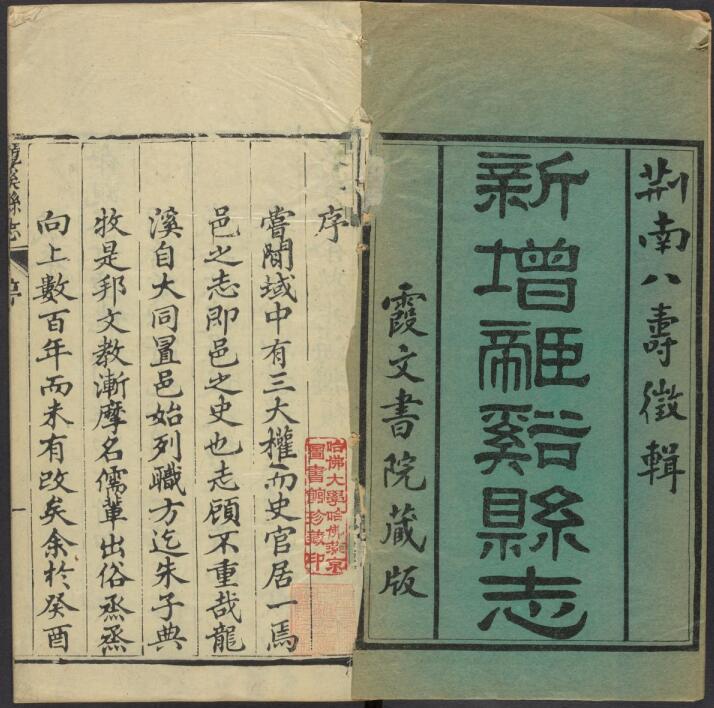 荆南八壽徵輯
新增龍谿縣志
霞文書院藏版
序
嘗聞域中有三大權而史官居一焉
邑之志即邑之史也志顧不重哉龍
溪自大同置邑始列職方迄朱子典
牧是邦文教漸摩名儒輩出俗烝烝
向上數百年而未有改矣余於癸酉
哈佛大學哈佛燕京
圖書館珍藏印